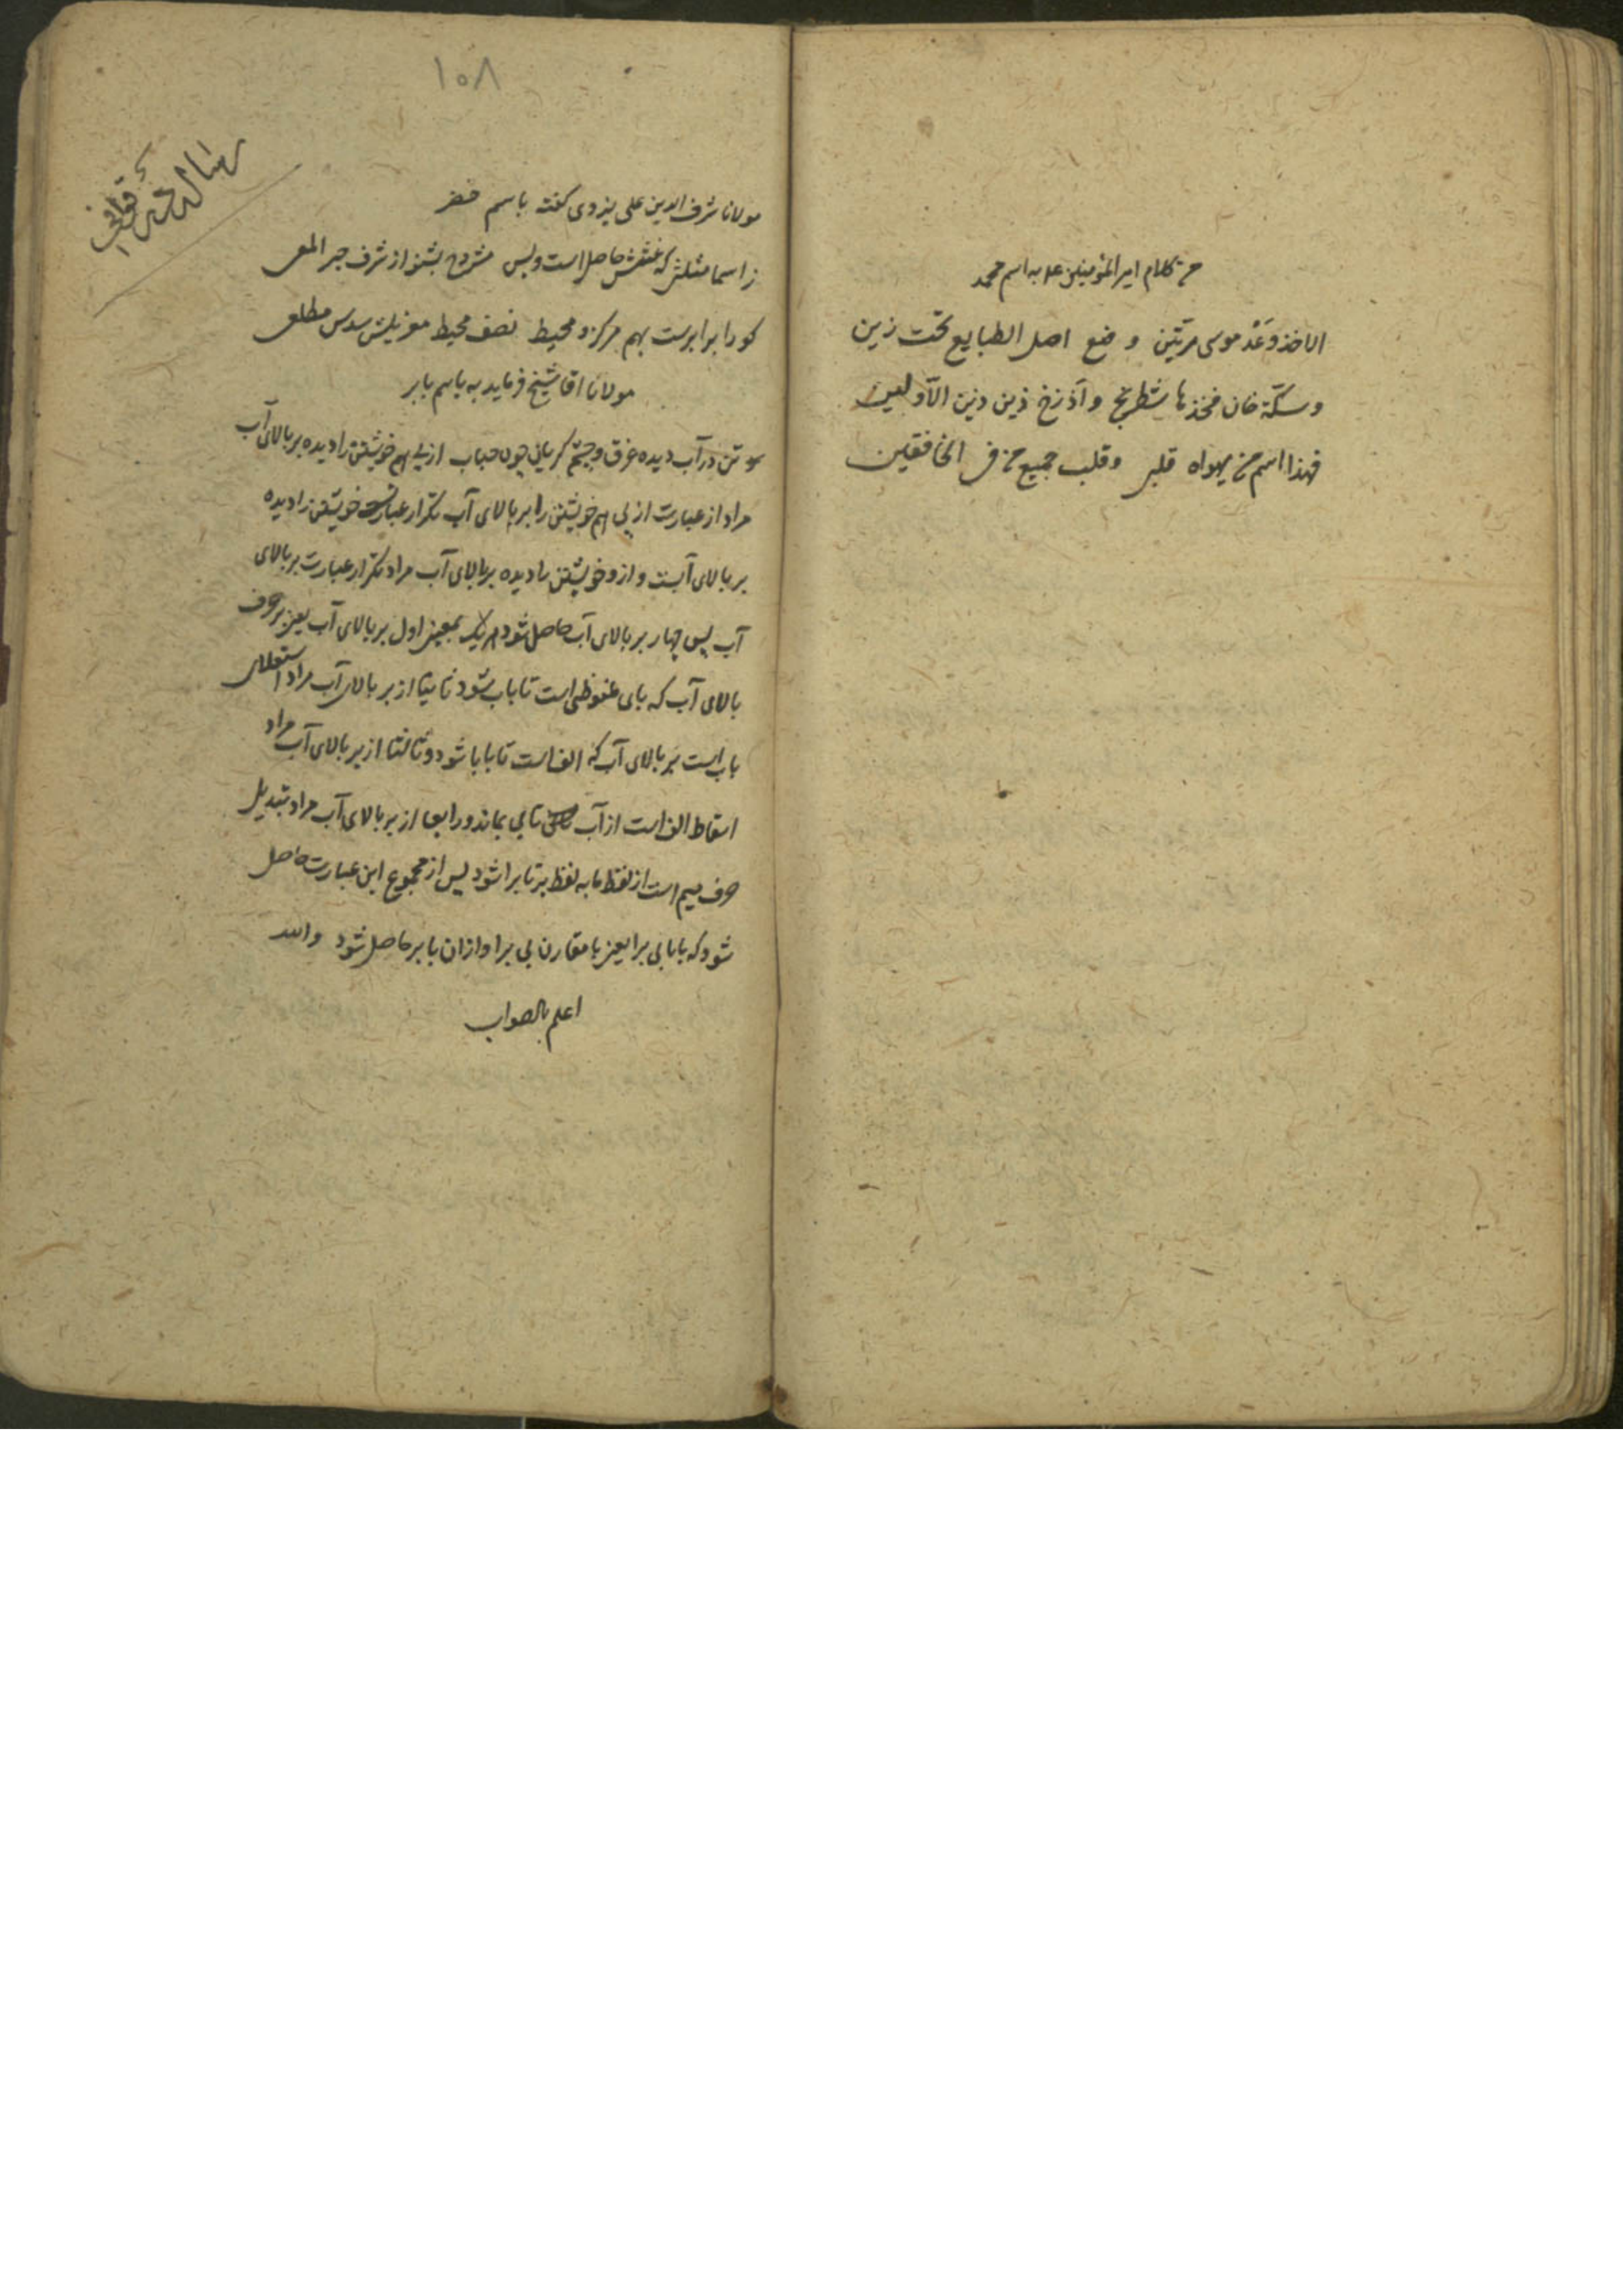 من کلام امیر المؤمنین علی به اسم محمد
الا خذ وَعْدَ موسی مرتین وضع اصل الطبایع تحت ذین
وسکّة خان فخذها شطرنج وادْرُج ذین ذین الاولین
فهذا اسم من یهواه قلبی وقلب جمیع من فی الخافقین
۱۰۸
رساله قوافی
مولانا شرف الدین علی یزدی گفته باسم خضر
ز اسما مثلثی که نقشش حاصل است و بس مشروح بشنو از شرف جبر
کو را برابرست بهم مرکز و محیط نصف محیط سدس مطلع
مولانا اقا شیخ فرماید به باسم بابر
تن در آب دیده غرق و چشم گریان چون حباب از پی هم خویشتن را دیده بر بالای آب
مراد از عبارت از پی هم خویشتن را بر بالای آب تکرار عبارت خویشتن را دیده
بر بالای آبست و از و خویشتن را دیده بر بالای آب مراد تکرار عبارت بر بالای
آب پس چهار بر بالای آب حاصل شود هر یک بمعنی اول بر بالای آب یعنی بر حرف
بالای آب که بای ملفوظی است تا باب شود ثانیا از بر بالای آب مراد استعلای
باب است بر بالای آب که الف است تا بابا شود و ثالثا از بر بالای آب مراد
اسقاط الف است از آب تا بی بماند و رابعا از بر بالای آب مراد تبدیل
حرف میم است از لفظ ما به لفظ بر تا برا شود پس از مجموع این عبارت حاصل
شود که بابا بی برا یعنی با مقارن بی برا و ازان بابر حاصل شود والله
اعلم بالصواب